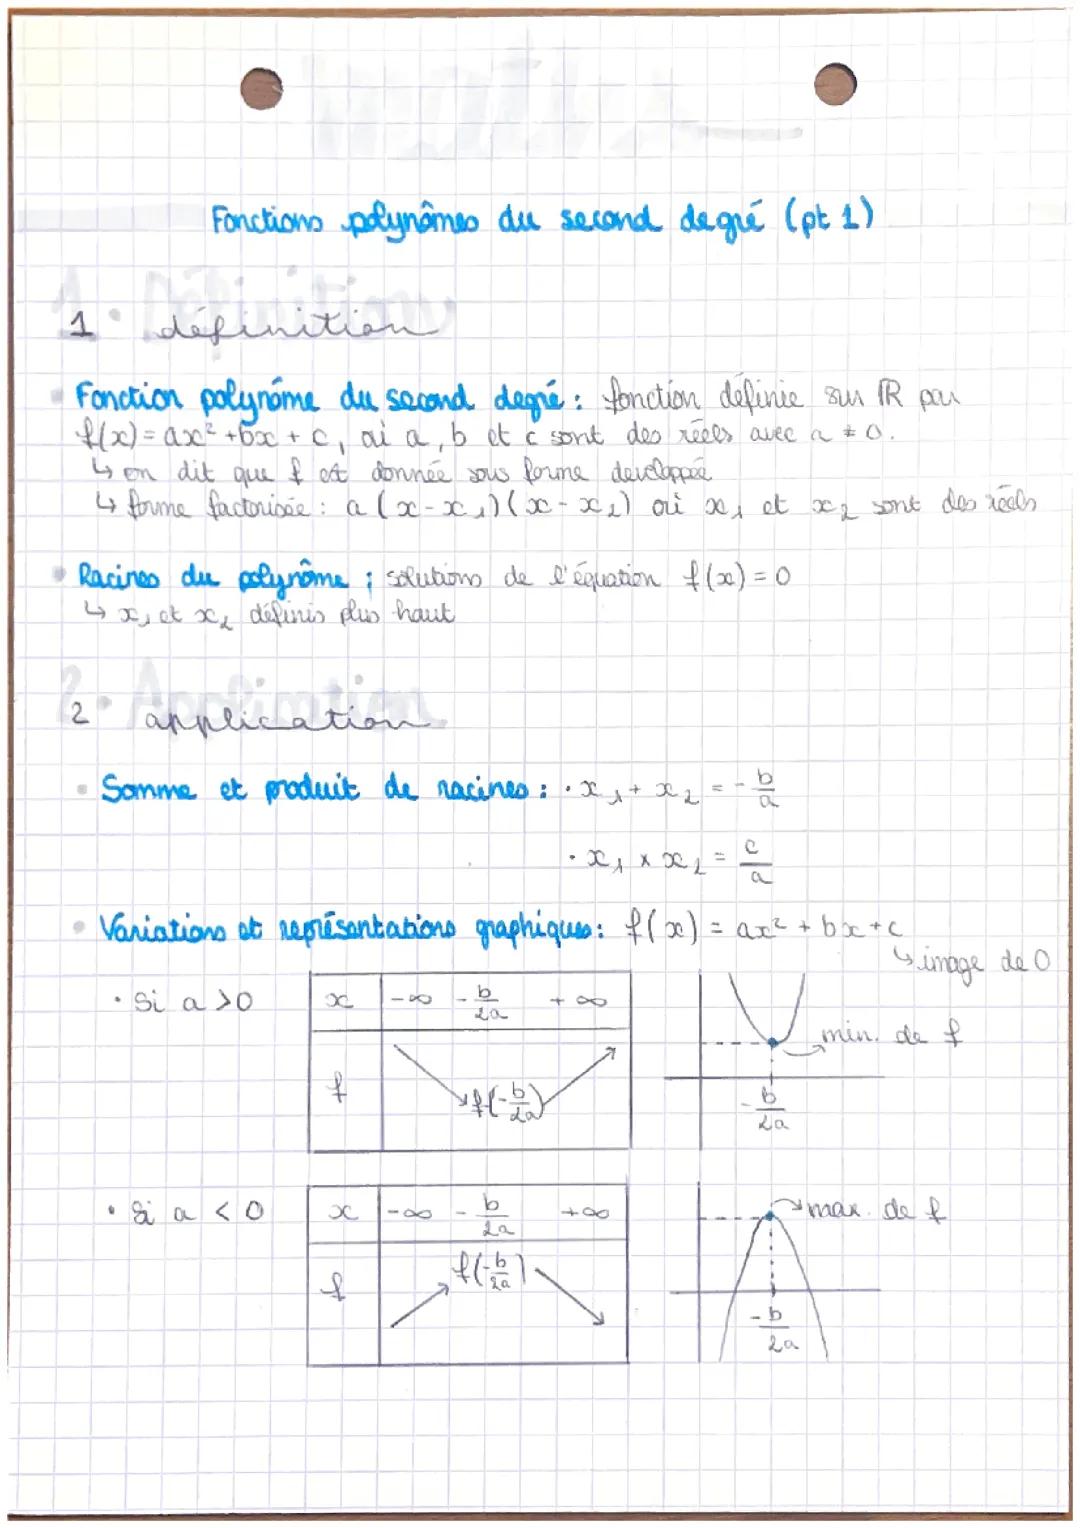 Fonctions polynômes du second degré (pt 1)
1. définition
Fonction polynôme du second degré : fonction définie sur ℝ par
f(x) = ax² + bx + c, où a, b et c sont des réels avec a ≠ 0.
↳ on dit que f est donnée sous forme developpée
↳ forme factorisée : a (x - x₁)(x - x₂) où x₁ et x₂ sont des réels
Racines du polynôme : solutions de l'équation f(x) = 0
↳ x₁ et x₂ définis plus haut
2. application
Somme et produit de racines : · x₁ + x₂ = - b/a
· x₁ × x₂ = c/a
Variations et représentations graphiques : f(x) = ax² + bx + c
↳ image de 0
· Si a > 0
x -∞ -b/2a +∞
f f(-b/2a)
min. de f
-b/2a
· Si a < 0
x -∞ -b/2a +∞
f f(-b/2a)
max. de f
-b/2a